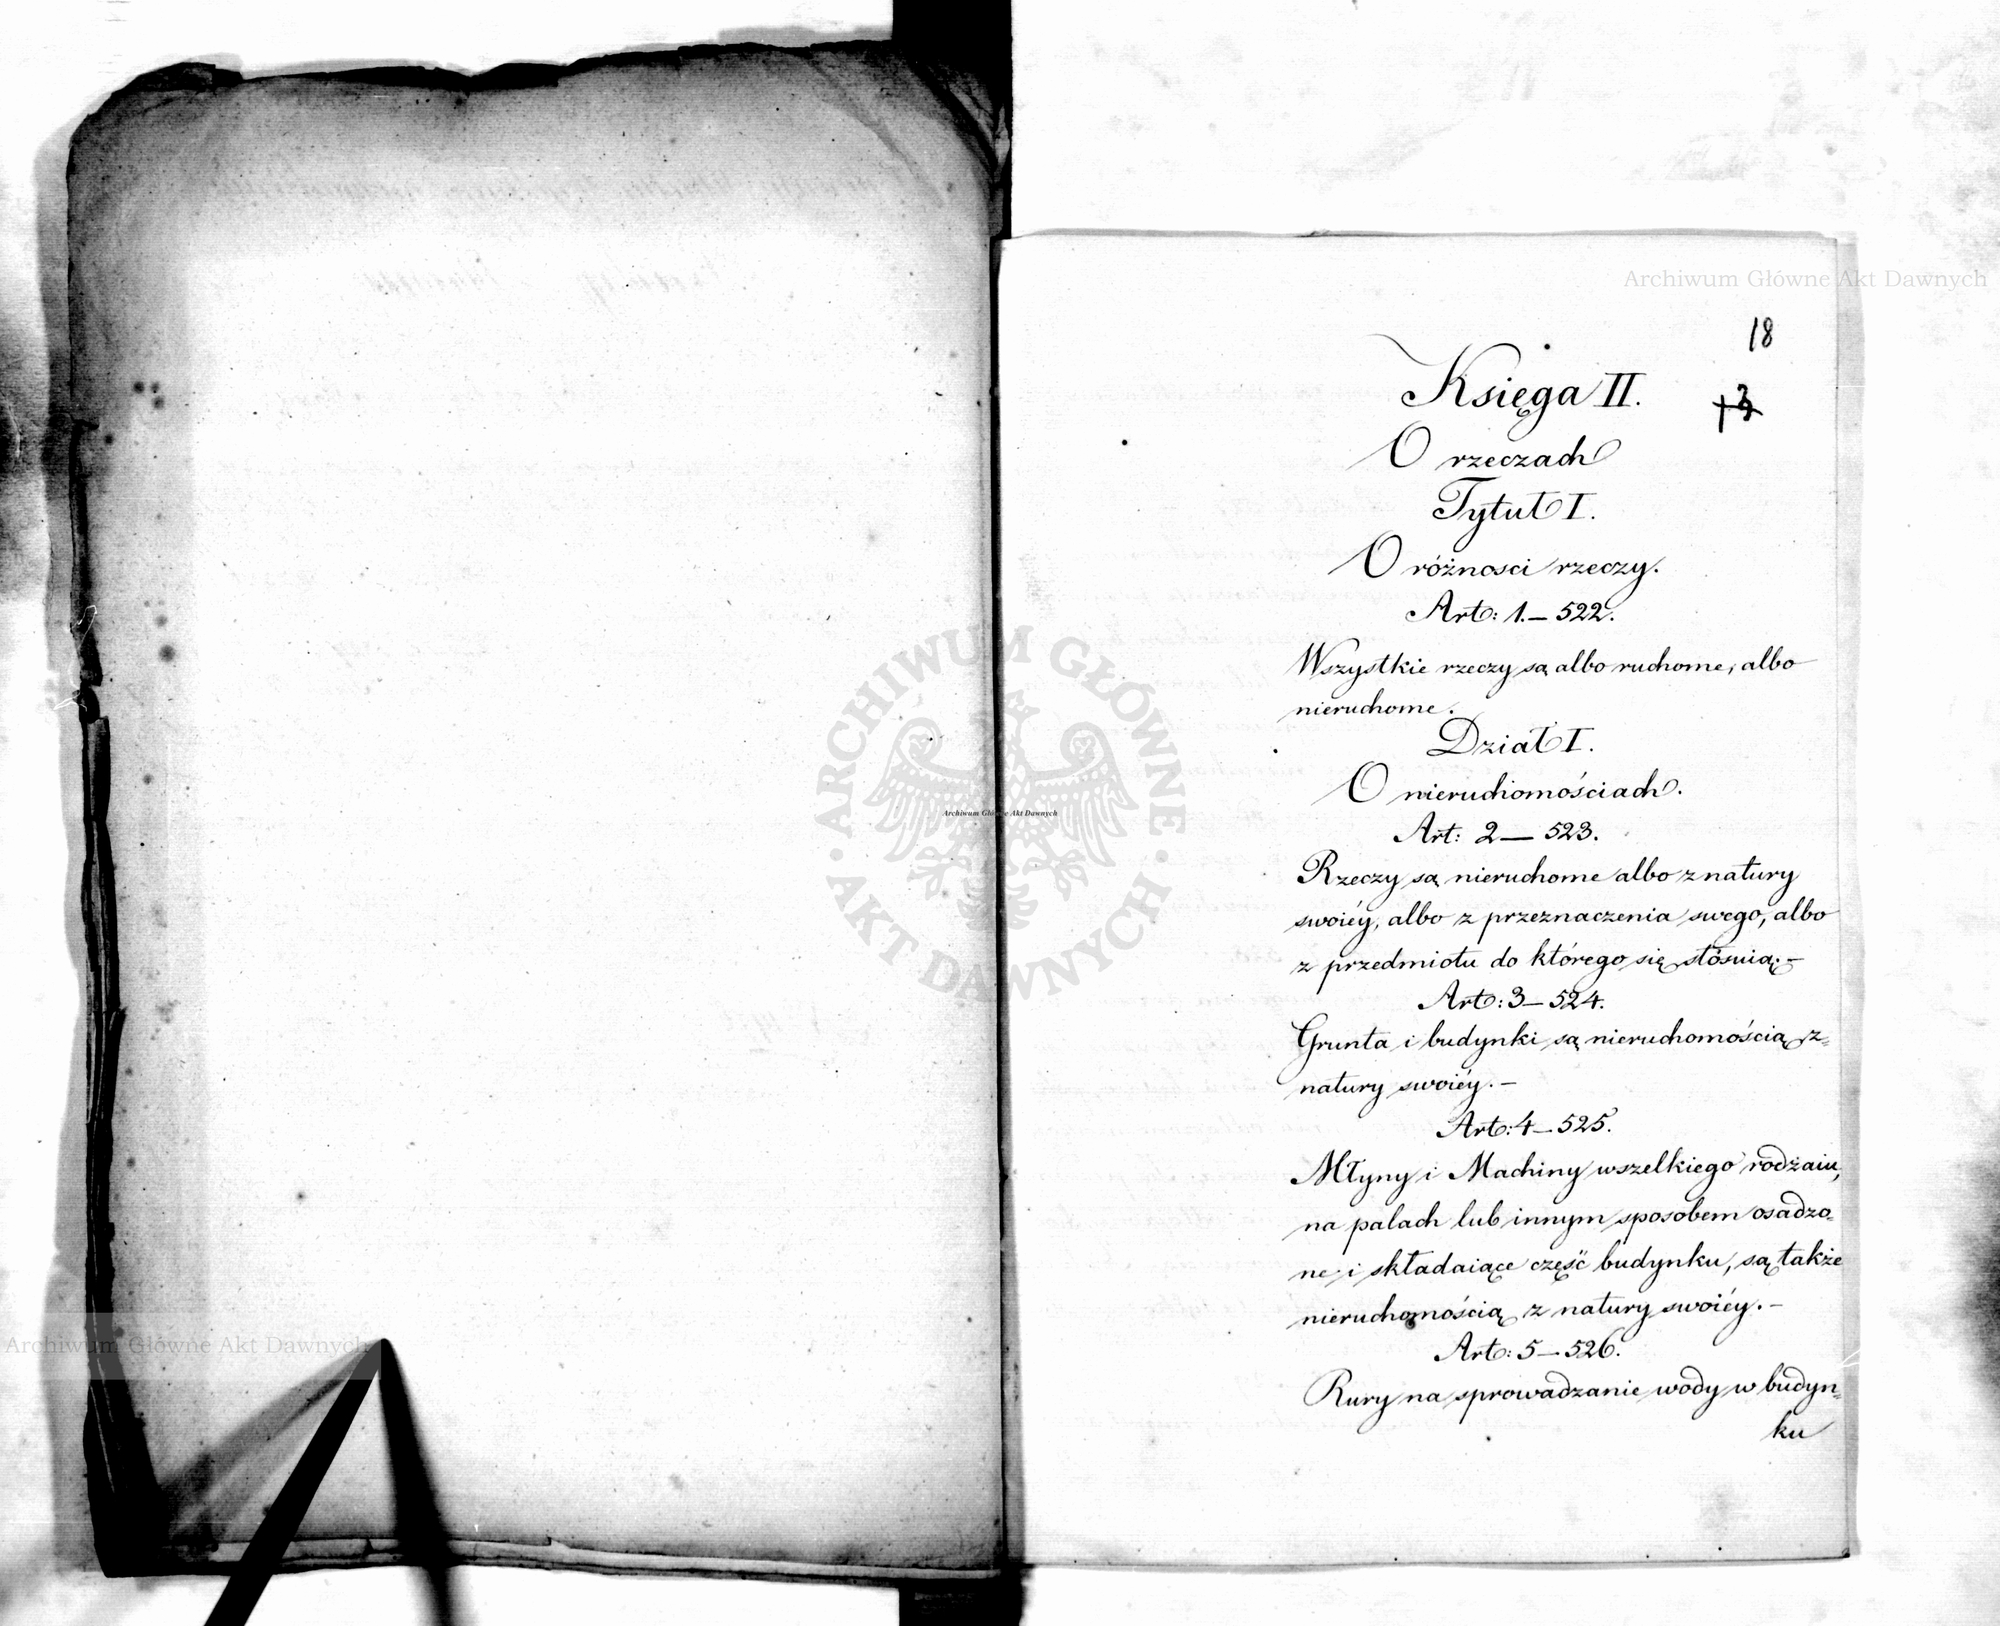 Archiwum Główne Akt Dawnych
18
Księga II.
O rzeczach
Tytuł I.
O różnosci rzeczy.
Art: 1.— 522.
Wszystkie rzeczy są albo ruchome, albo
nieruchome.
Dział I.
O nieruchomościach.
Art: 2 — 523.
Rzeczy są nieruchome albo z natury
swoiéy, albo z przeznaczenia swego, albo
z przedmiotu do którego się stósuią.—
Art: 3 — 524.
Grunta i budynki są nieruchomością z=
natury swoiéy.—
Art: 4 — 525.
Młyny i Machiny wszelkiego rodzaiu,
na palach lub innym sposobem osadzo=
ne i składaiące część budynku, są także
nieruchomością z natury swoiéy.—
Art: 5 — 526.
Rury na sprowadzanie wody w budyn=
ku
ARCHIWUM GŁÓWNE
AKT DAWNYCH
Archiwum Główne Akt Dawnych
Archiwum Główne Akt Dawnych